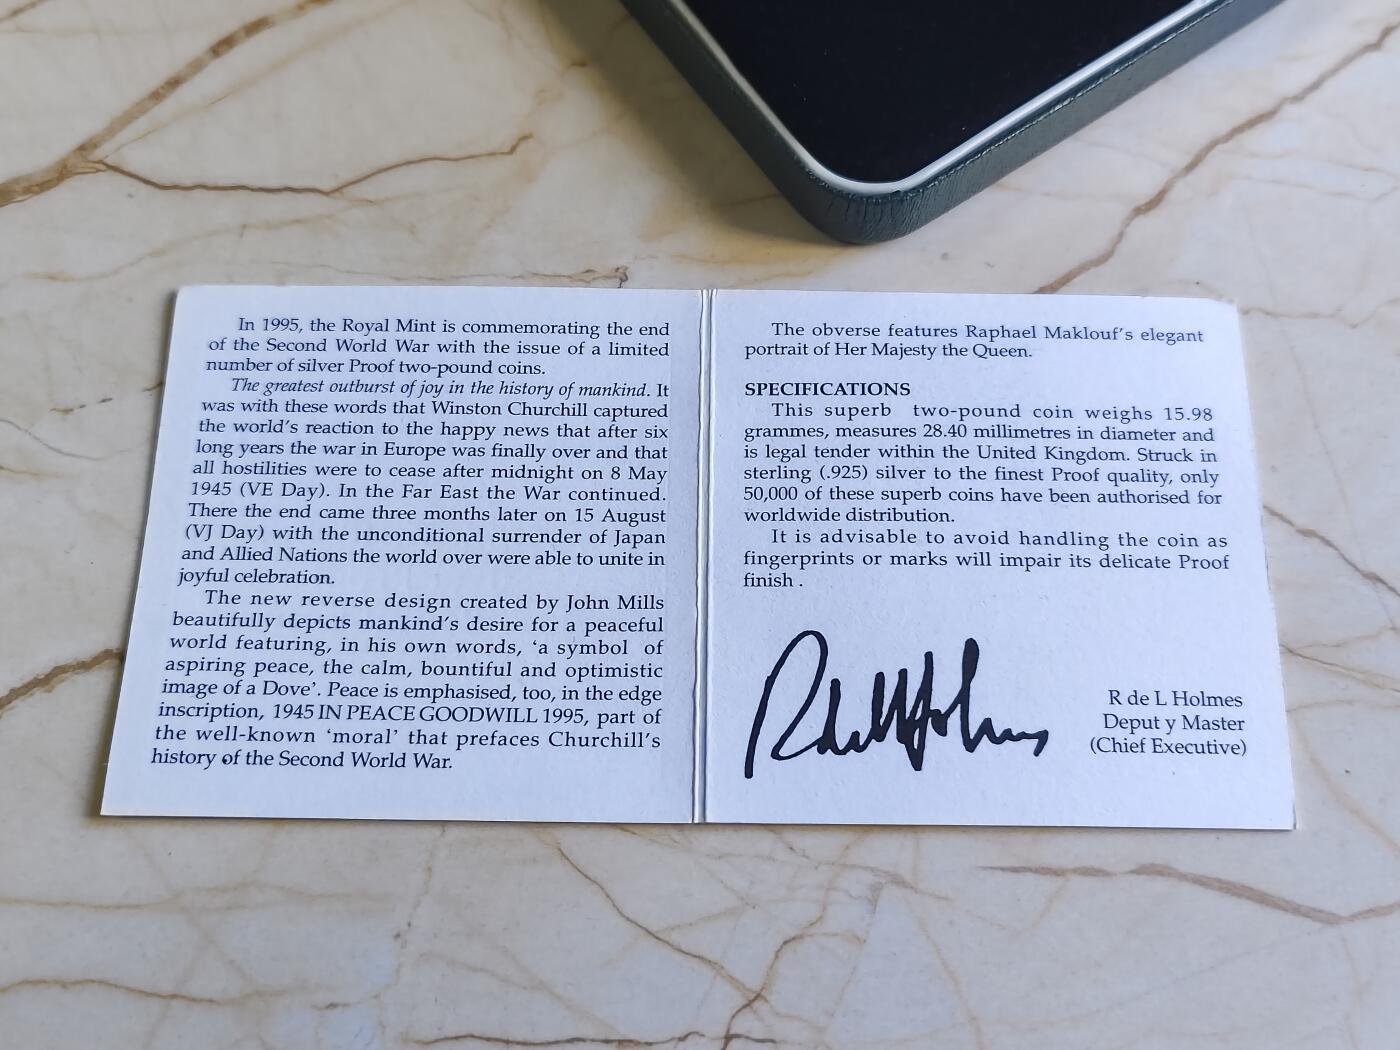 In 1995, the Royal Mint is commemorating the end
of the Second World War with the issue of a limited
number of silver Proof two-pound coins.
The greatest outburst of joy in the history of mankind. It
was with these words that Winston Churchill captured
the world's reaction to the happy news that after six
long years the war in Europe was finally over and that
all hostilities were to cease after midnight on 8 May
1945 (VE Day). In the Far East the War continued.
There the end came three months later on 15 August
(VJ Day) with the unconditional surrender of Japan
and Allied Nations the world over were able to unite in
joyful celebration.
The new reverse design created by John Mills
beautifully depicts mankind's desire for a peaceful
world featuring, in his own words, 'a symbol of
aspiring peace, the calm, bountiful and optimistic
image of a Dove'. Peace is emphasised, too, in the edge
inscription, 1945 IN PEACE GOODWILL 1995, part of
the well-known 'moral' that prefaces Churchill's
history of the Second World War.
The obverse features Raphael Maklouf's elegant
portrait of Her Majesty the Queen.
SPECIFICATIONS
This superb two-pound coin weighs 15.98
grammes, measures 28.40 millimetres in diameter and
is legal tender within the United Kingdom. Struck in
sterling (.925) silver to the finest Proof quality, only
50,000 of these superb coins have been authorised for
worldwide distribution.
It is advisable to avoid handling the coin as
fingerprints or marks will impair its delicate Proof
finish .
R de L Holmes
Deput y Master
(Chief Executive)